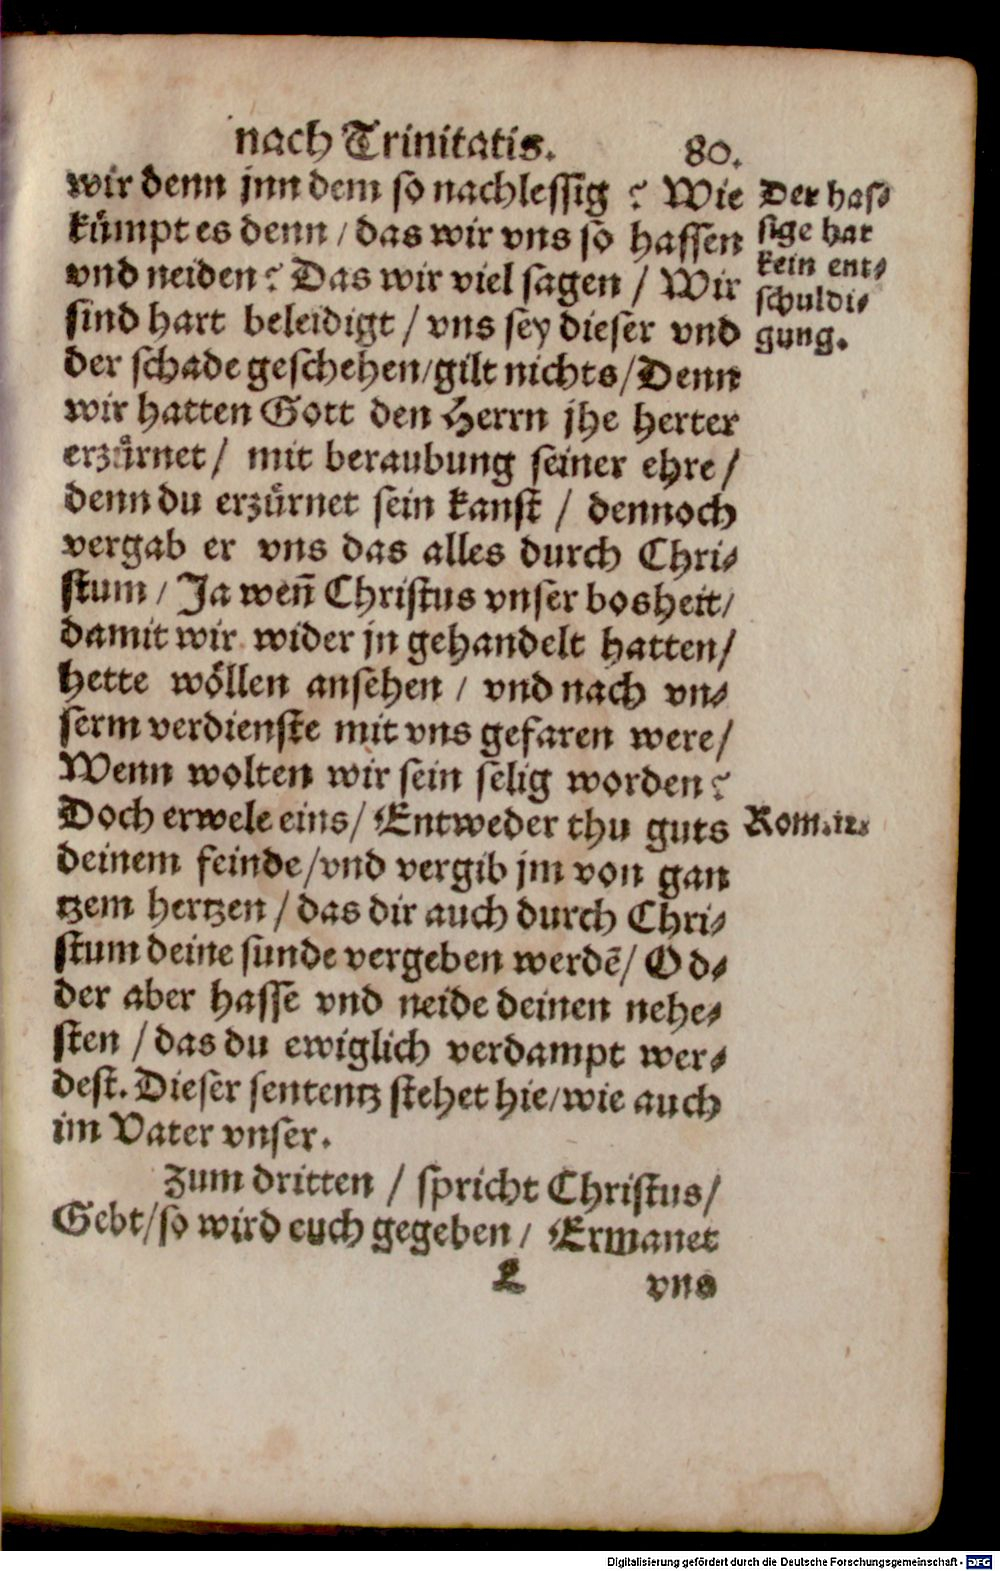 nach Trinitatis. 80.
wir denn jnn dem so nachlessig? Wie
kümpt es denn / das wir vns so hassen
vnd neiden? Das wir viel sagen / Wir
sind hart beleidigt / vns sey dieser vnd
der schade geschehen / gilt nichts / Denn
wir hatten Gott den Herrn jhe herter
erzürnet / mit beraubung seiner ehre /
denn du erzürnet sein kanst / dennoch
vergab er vns das alles durch Chri-
stum / Ja weñ Christus vnser bosheit /
damit wir wider jn gehandelt hatten /
hette wöllen ansehen / vnd nach vn-
serm verdienste mit vns gefaren were /
Wenn wolten wir sein selig worden?
Doch erwele eins / Entweder thu guts
deinem feinde / vnd vergib jm von gan
tzem hertzen / das dir auch durch Chri-
stum deine sunde vergeben werdẽ / Od-
der aber hasse vnd neide deinen nehe-
sten / das du ewiglich verdampt wer-
dest. Dieser sententz stehet hie / wie auch
im Vater vnser.
Zum dritten / spricht Christus /
Gebt / so wird euch gegeben / Ermanet
L vns
Der has-
sige hat
kein ent-
schuldi-
gung.
Rom. 12.
Digitalisierung gefördert durch die Deutsche Forschungsgemeinschaft - DFG